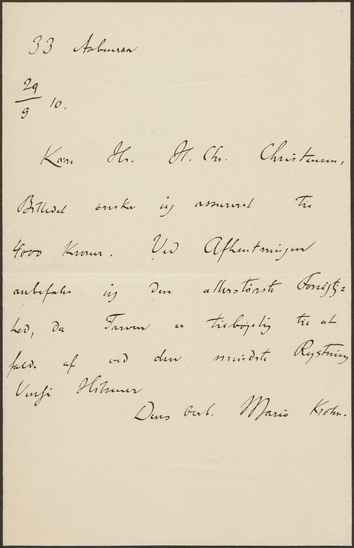 33 Aabenraa
29/9 10.
Kære Hr. H. Chr. Christensen,
Billedet ønsker jeg assureret til
4000 Kroner. Ved Afhentningen
anbefaler jeg Dem allerstørste Forsigtig=
hed, da Farven er tilbøjelig til at
falde af ved den mindste Rystning
Venlig Hilsener
Deres erb. Mario Krohn.